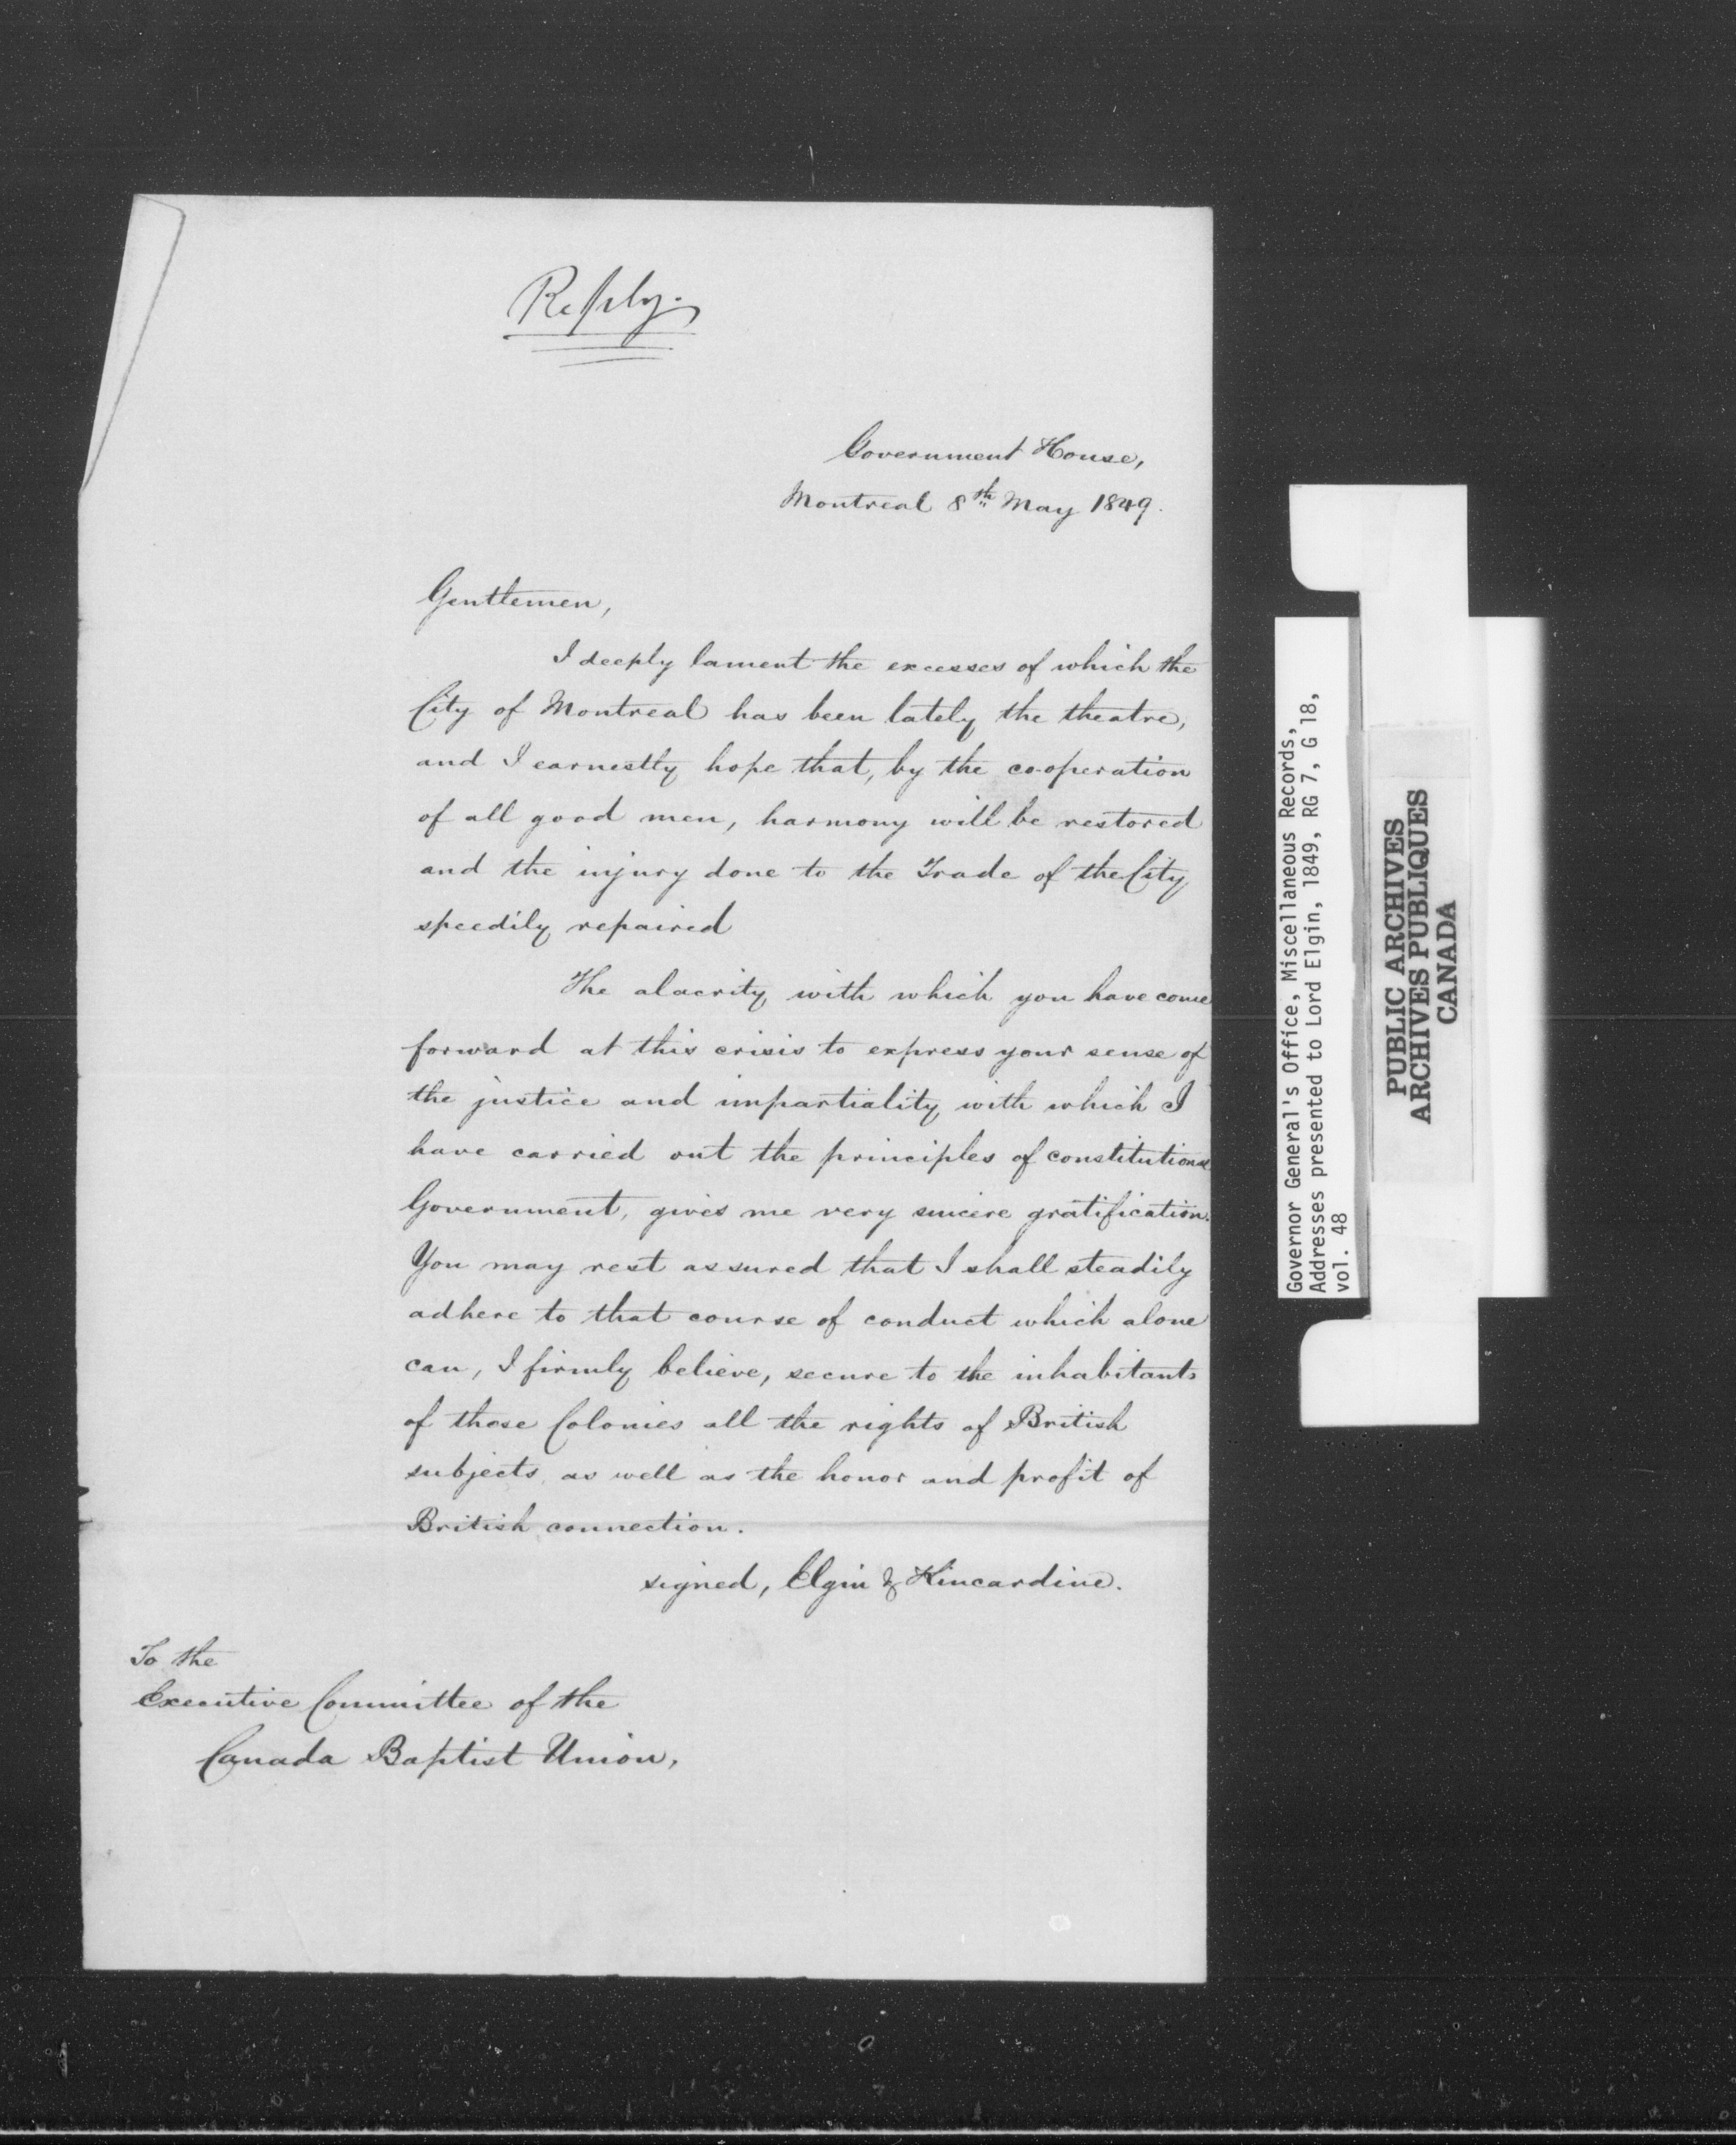 Reply.
Government House,
Montreal 8th May 1849.
Gentlemen,
I deeply lament the excesses of which the
City of Montreal has been lately the theatre,
and I earnestly hope that, by the co-operation
of all good men, harmony will be restored
and the injury done to the Trade of the City
speedily repaired
The alacrity with which you have come
forward at this crisis to express your sense of
the justice and impartiality with which I
have carried out the principles of constitutional
Government, gives me very sincere gratification.
You may rest assured that I shall steadily
adhere to that course of conduct which alone
can, I firmly believe, secure to the inhabitants
of those Colonies all the rights of British
subjects, as well as the honor and profit of
British connection.
signed, Elgin & Kincardine.
To the
Executive Committee of the
Canada Baptist Union,
Governor General's Office, Miscellaneous Records,
Addresses presented to Lord Elgin, 1849, RG 7, G 18,
vol. 48
PUBLIC ARCHIVES
ARCHIVES PUBLIQUES
CANADA